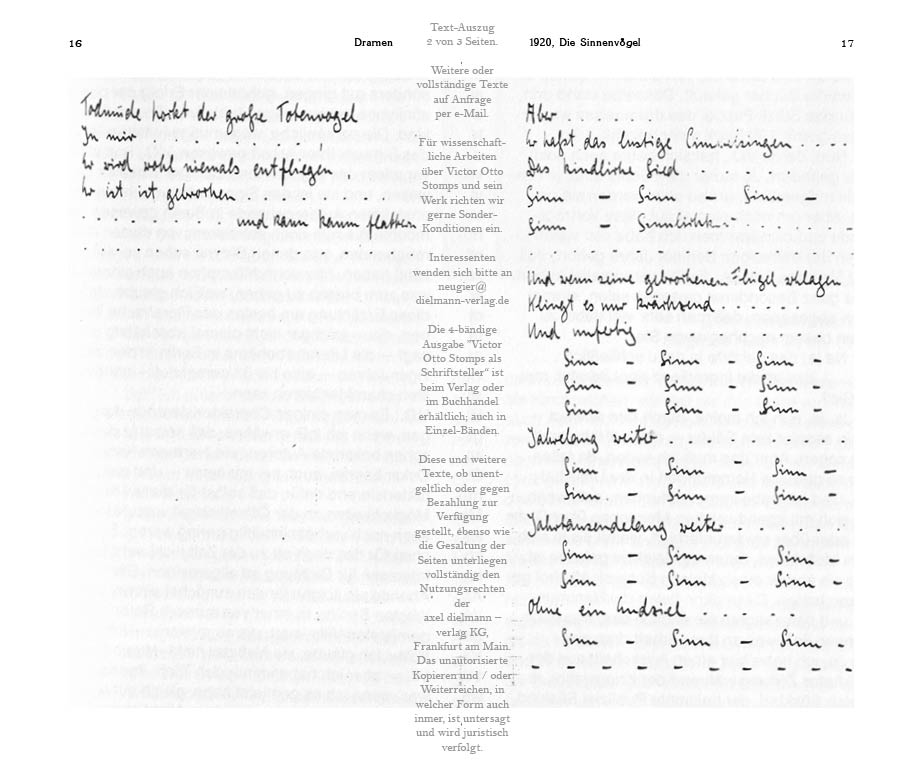 16
Dramen
Todmüde horkt der große Totenvogel
In mir . . . . . . . . . .
Er wird wohl niemals entfliegen
Er ist ist gebrochen . . . . . . .
. . . . . . . . und kann kann flattern
. . . . . . . . . . . . . .
Text-Auszug
2 von 3 Seiten.
Weitere oder
vollständige Texte
auf Anfrage
per e-Mail.
Für wissenschaft-
liche Arbeiten
über Victor Otto
Stomps und sein
Werk richten wir
gerne Sonder-
Konditionen ein.
Interessenten
wenden sich bitte an
neugier@
dielmann-verlag.de
Die 4-bändige
Ausgabe "Victor
Otto Stomps als
Schriftsteller" ist
beim Verlag oder
im Buchhandel
erhältlich; auch in
Einzel-Bänden.
Diese und weitere
Texte, ob unent-
geltlich oder gegen
Bezahlung zur
Verfügung
gestellt, ebenso wie
die Gesaltung der
Seiten unterliegen
vollständig den
Nutzungsrechten
der
axel dielmann –
verlag KG,
Frankfurt am Main.
Das unautorisierte
Kopieren und / oder
Weiterreichen, in
welcher Form auch
inmer, ist untersagt
und wird juristisch
verfolgt.
1920, Die Sinnenvögel
17
Aber . . . . . . . . . . . .
Er haßt das lustige . . . .
Das kindliche Lied . . . . . . .
Sinn – Sinn – Sinn –
Sinn – Sinnlich- . . . . . . .
Und wenn seine gebrochenen Flügel schlagen
Klingt es nur krächzend . . . . . .
Und unfertig . . . . . . . .
Sinn – Sinn – Sinn –
Sinn – Sinn – Sinn –
Sinn – Sinn – Sinn –
Jahrelang weiter . . . . . .
Sinn – Sinn – Sinn –
Sinn – Sinn – Sinn –
Jahrtausendelang weiter . . . . .
Sinn – Sinn – Sinn –
Sinn – Sinn – Sinn –
Ohne ein Endziel . . . . .
Sinn – Sinn – Sinn –
– – – – – – – – – –